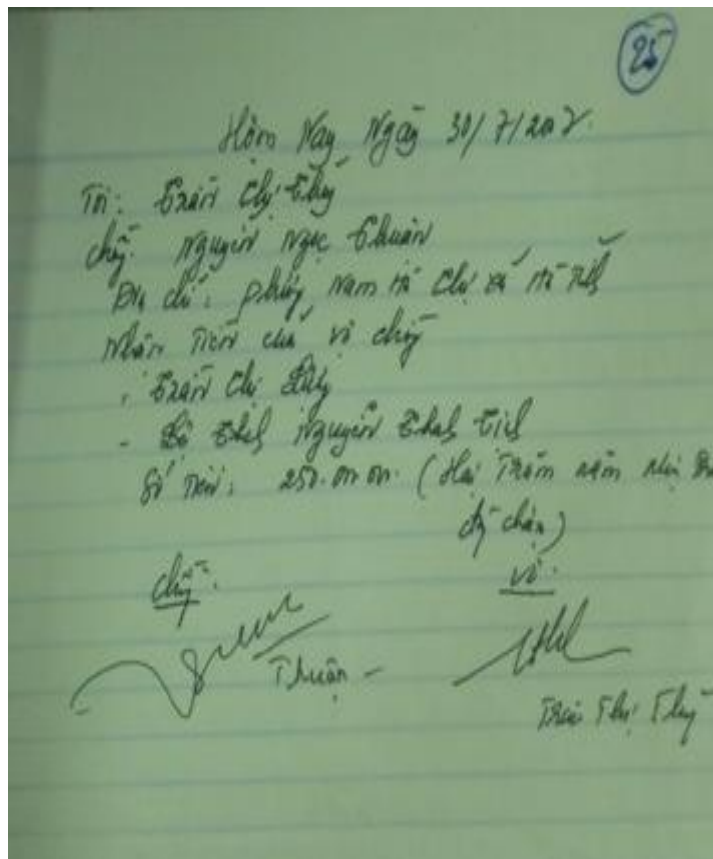 25
Hôm Nay Ngày 30/7/2012
Tôi: Trần Thị Thủy
chồng: Nguyễn Ngọc Thuận
Địa chỉ: phường Nam Hà Thị xã Hà Tĩnh
Nhận Tiền của vợ chồng
- Trần Thị
- Nguyễn
Số Tiền: 250.000.000. (Hai Trăm năm mươi
chẵn)
chồng. vợ.
Thuận
Trần Thị Thủy